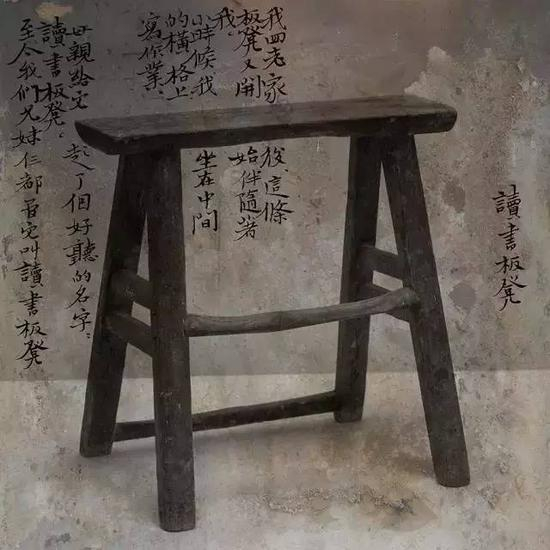 讀書板凳
我回老家後，這條
板凳又開始伴隨著
我。
小時候我坐在中間
的橫格上
寫作業、
母親給它起了個好聽的名字：
讀書板凳。
至今我們兄妹仨都管它叫讀書板凳